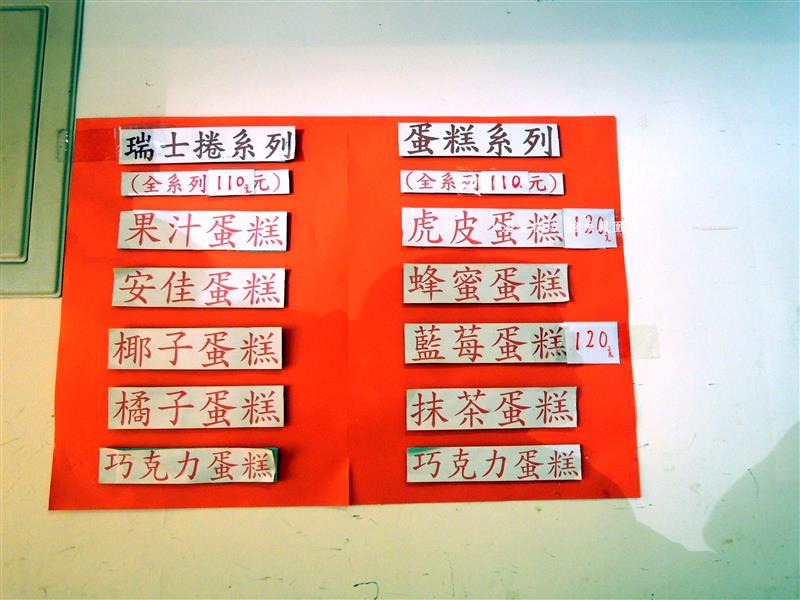 瑞士捲系列
(全系列110元元)
果汁蛋糕
安佳蛋糕
椰子蛋糕
橘子蛋糕
巧克力蛋糕
蛋糕系列
(全系列110元)
虎皮蛋糕 120元
蜂蜜蛋糕
藍莓蛋糕 120元
抹茶蛋糕
巧克力蛋糕